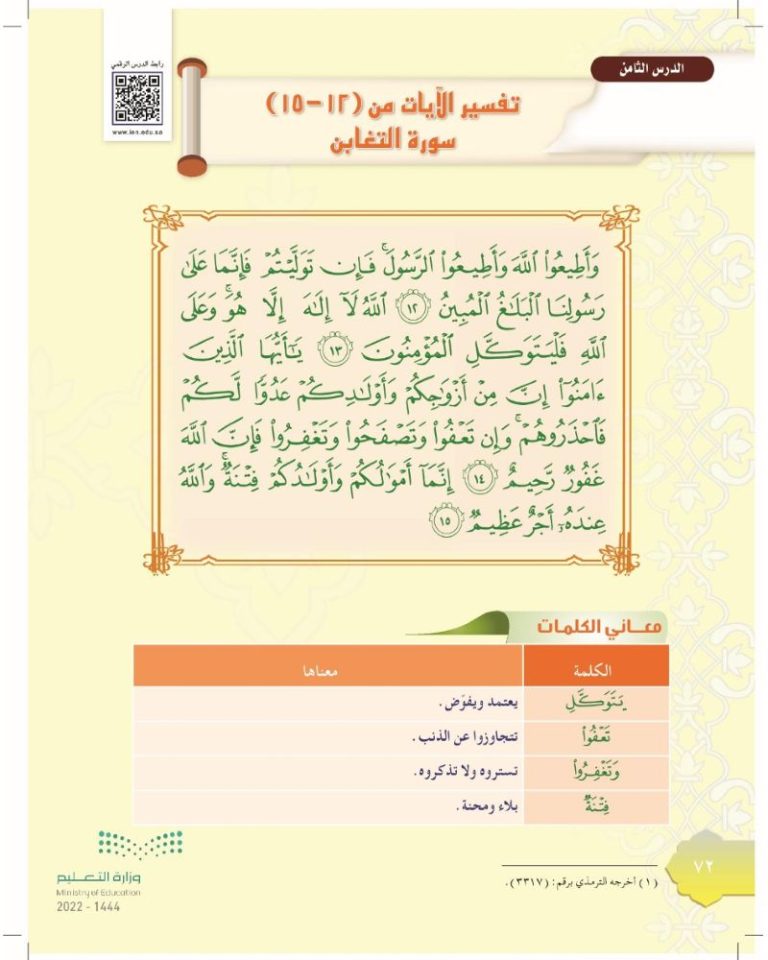 رابط الدرس الرقمي
www.ien.edu.sa
الدرس الثامن
تفسير الآيات من (١٢-١٥)
سورة التغابن
وَأَطِيعُوا۟ ٱللَّهَ وَأَطِيعُوا۟ ٱلرَّسُولَ ۚ فَإِن تَوَلَّيْتُمْ فَإِنَّمَا عَلَىٰ
رَسُولِنَا ٱلْبَلَـٰغُ ٱلْمُبِينُ ١٢ ٱللَّهُ لَآ إِلَـٰهَ إِلَّا هُوَ ۚ وَعَلَى
ٱللَّهِ فَلْيَتَوَكَّلِ ٱلْمُؤْمِنُونَ ١٣ يَـٰٓأَيُّهَا ٱلَّذِينَ
ءَامَنُوٓا۟ إِنَّ مِنْ أَزْوَٰجِكُمْ وَأَوْلَـٰدِكُمْ عَدُوًّا لَّكُمْ
فَٱحْذَرُوهُمْ ۚ وَإِن تَعْفُوا۟ وَتَصْفَحُوا۟ وَتَغْفِرُوا۟ فَإِنَّ ٱللَّهَ
غَفُورٌ رَّحِيمٌ ١٤ إِنَّمَآ أَمْوَٰلُكُمْ وَأَوْلَـٰدُكُمْ فِتْنَةٌ ۚ وَٱللَّهُ
عِندَهُۥٓ أَجْرٌ عَظِيمٌ ١٥
معاني الكلمات
الكلمة معناها
يَتَوَكَّلِ يعتمد ويفوّض.
تَعْفُوا۟ تتجاوزوا عن الذنب.
وَتَغْفِرُوا۟ تستروه ولا تذكروه.
فِتْنَةٌ بلاء ومحنة.
(١) أخرجه الترمذي برقم: (٣٣١٧).
٧٢
وزارة التعليم
Ministry of Education
2022 - 1444